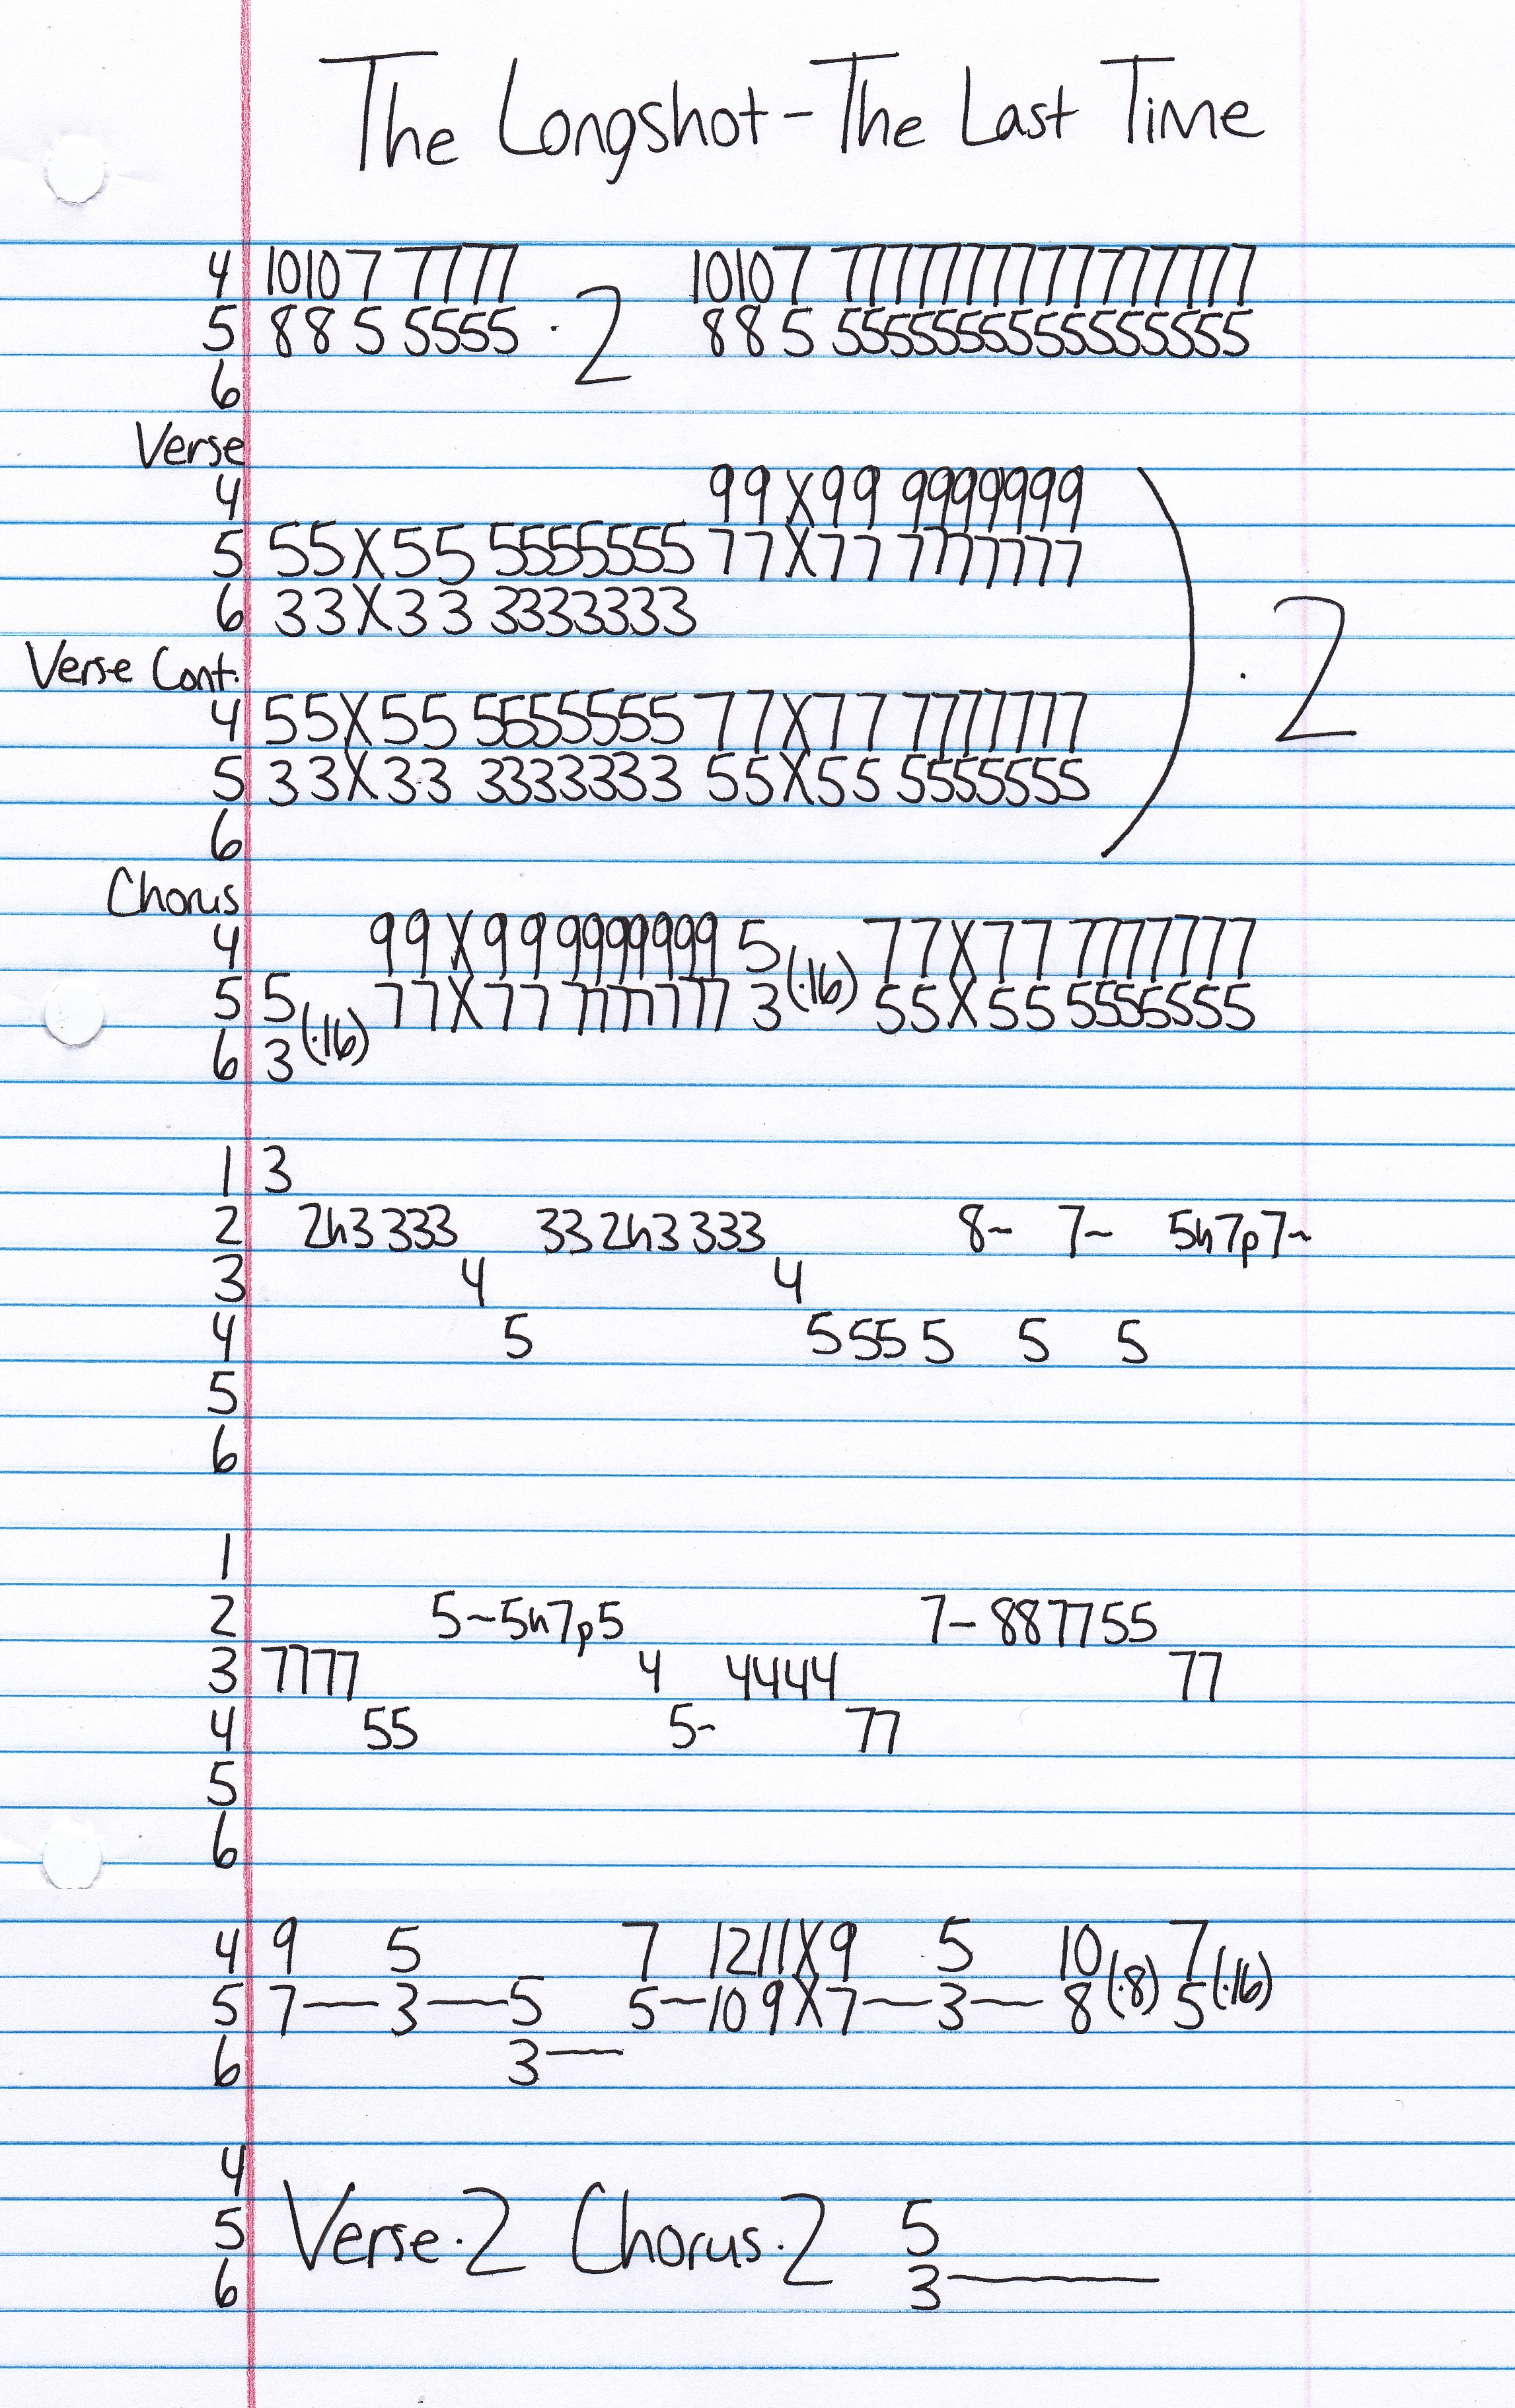 The Longshot - The Last Time
4 10 10 7 7777 10 10 7 777777777777777
5 8 8 5 5555 · 2 8 8 5 555555555555555
6
Verse
4 99X99 9999999
5 55X55 5555555 77X77 7777777
6 33X33 3333333
· 2
Verse Cont.
4 55X55 5555555 77X77 7777777
5 33X33 3333333 55X55 5555555
6
Chorus
4 99X99 9999999 5 (·16) 77X77 7777777
5 5 (·16) 77X77 7777777 3 55X55 5555555
6 3
1 3
2 2h3 333 33 2h3 333 8~ 7~ 5h7p7~
3 4 4
4 5 5 55 5 5 5
5
6
1
2 5~5h7p5 7~ 887755
3 7777 4 4444 77
4 55 5~ 77
5
6
4 9 5 7 12 11 X 9 5 10 (·8) 7 (·16)
5 7—3—5 5—10 9 X 7—3— 8 5
6 3—
4
5 Verse · 2 Chorus · 2 5
6 3—